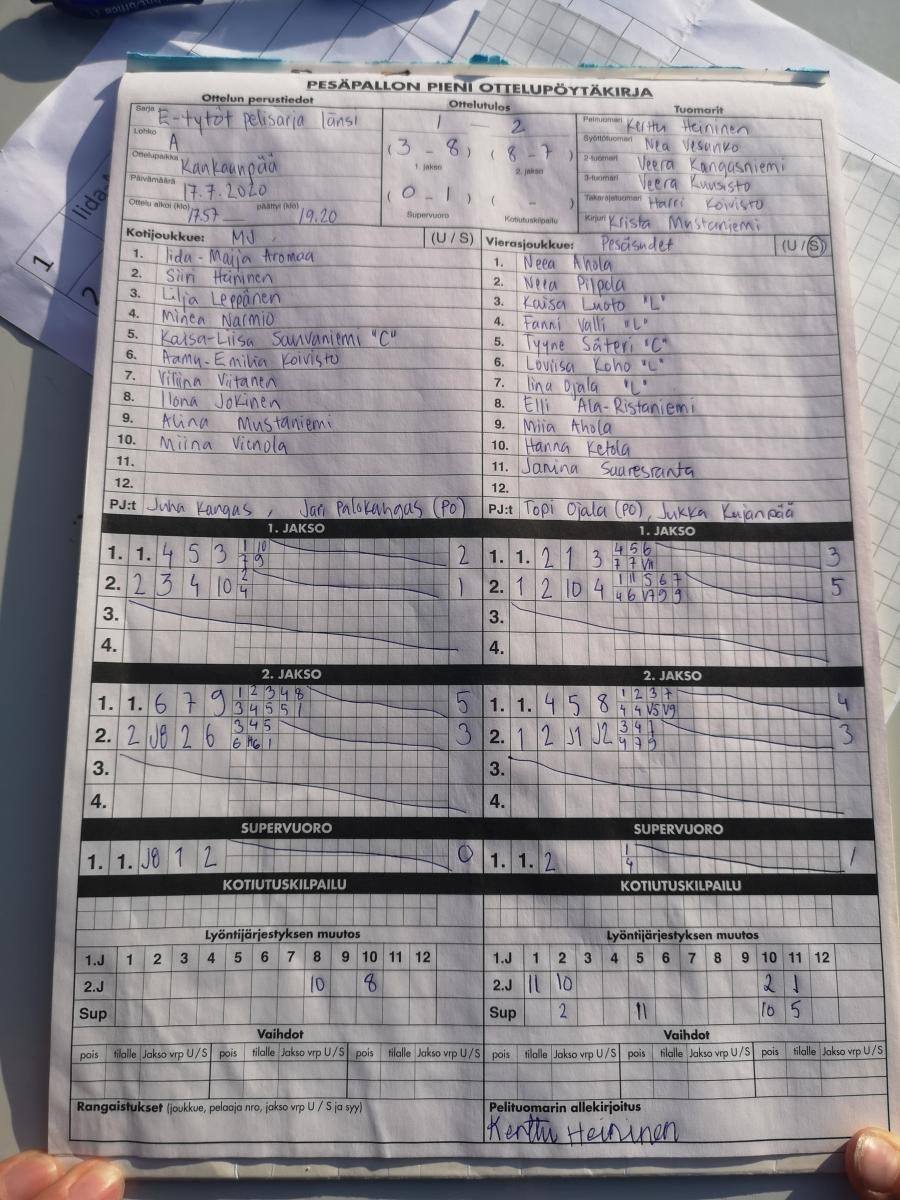 PESÄPALLON PIENI OTTELUPÖYTÄKIRJA
Ottelun perustiedot
Sarja E-tytöt pelisarja länsi
Lohko A
Ottelupaikka Kankaanpää
Päivämäärä 17.7.2020
Ottelu alkoi (klo) 17.57 päättyi (klo) 19.20
Ottelutulos
1 — 2
(3 - 8) (8 - 7)
1. jakso 2. jakso
(0 - 1) ( - )
Supervuoro Kotiutuskilpailu
Tuomarit
Pelituomari Kerttu Heininen
Syöttötuomari Nea Vesanko
2-tuomari Veera Kangasniemi
3-tuomari Veera Kuusisto
Takarajatuomari Harri Koivisto
Kirjuri Krista Mustaniemi
Kotijoukkue: MJ (U / S)
1. Iida-Maija Aromaa
2. Siiri Heininen
3. Lilja Leppänen
4. Minea Narmio
5. Kaisa-Liisa Sauvaniemi "C"
6. Aamu-Emilia Koivisto
7. Viliina Viitanen
8. Ilona Jokinen
9. Alina Mustaniemi
10. Miina
11.
12.
PJ:t Juha Kangas, Jari Palokangas (PO)
Vierasjoukkue: Pesäsudet (U / S)
1. Neea Ahola
2. Neea Pilpola
3. Kaisa Luoto "L"
4. Fanni Valli "L"
5. Tyyne Säteri "C"
6. Loviisa Koho "L"
7. Iina Ojala "L"
8. Elli Ala-Ristaniemi
9. Miia Ahola
10. Hanna Ketola
11. Janina Saaresranta
12.
PJ:t Topi Ojala (PO), Jukka Kujanpää
1. JAKSO
1. 1. 4 5 3 1 10 2
7 9
2. 2 3 4 10 2 1
4
3.
4.
1. JAKSO
1. 1. 2 1 3 4 5 6 3
7 7 VII
2. 1 2 10 4 1 11 5 6 7 5
4 6 V7 9 9
3.
4.
2. JAKSO
1. 1. 6 7 9 1 2 3 4 8 5
3 4 5 5 1
2. 2 J8 2 6 3 4 5 3
6 1
3.
4.
2. JAKSO
1. 1. 4 5 8 1 2 3 7 4
4 4 V5 V9
2. 1 2 J1 J2 3 4 1 3
4 7 9
3.
4.
SUPERVUORO
1. 1. J8 1 2 0
SUPERVUORO
1. 1. 2 1 1
4
KOTIUTUSKILPAILU
KOTIUTUSKILPAILU
Lyöntijärjestyksen muutos
1.J 1 2 3 4 5 6 7 8 9 10 11 12
2.J 10 8
Sup
Lyöntijärjestyksen muutos
1.J 1 2 3 4 5 6 7 8 9 10 11 12
2.J 11 10 2 1
Sup 2 11 10 5
Vaihdot
pois tilalle Jakso vrp U/S pois tilalle Jakso vrp U/S pois tilalle Jakso vrp U/S
Vaihdot
pois tilalle Jakso vrp U/S pois tilalle Jakso vrp U/S pois tilalle Jakso vrp U/S
Rangaistukset (joukkue, pelaaja nro, jakso vrp U / S ja syy)
Pelituomarin allekirjoitus
Kerttu Heininen
1
Iida-
2